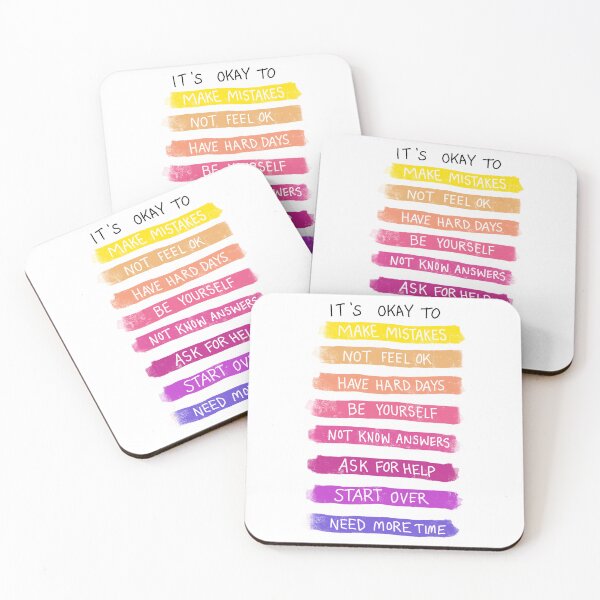 IT'S OKAY TO
MAKE MISTAKES
NOT FEEL OK
HAVE HARD DAYS
BE YOURSELF
IT'S OKAY TO
MAKE MISTAKES
NOT FEEL OK
HAVE HARD DAYS
BE YOURSELF
NOT KNOW ANSWERS
ASK FOR HELP
IT'S OKAY TO
MAKE MISTAKES
NOT FEEL OK
HAVE HARD DAYS
BE YOURSELF
NOT KNOW ANSWERS
ASK FOR HELP
START OVER
NEED MO
IT'S OKAY TO
MAKE MISTAKES
NOT FEEL OK
HAVE HARD DAYS
BE YOURSELF
NOT KNOW ANSWERS
ASK FOR HELP
START OVER
NEED MORE TIME